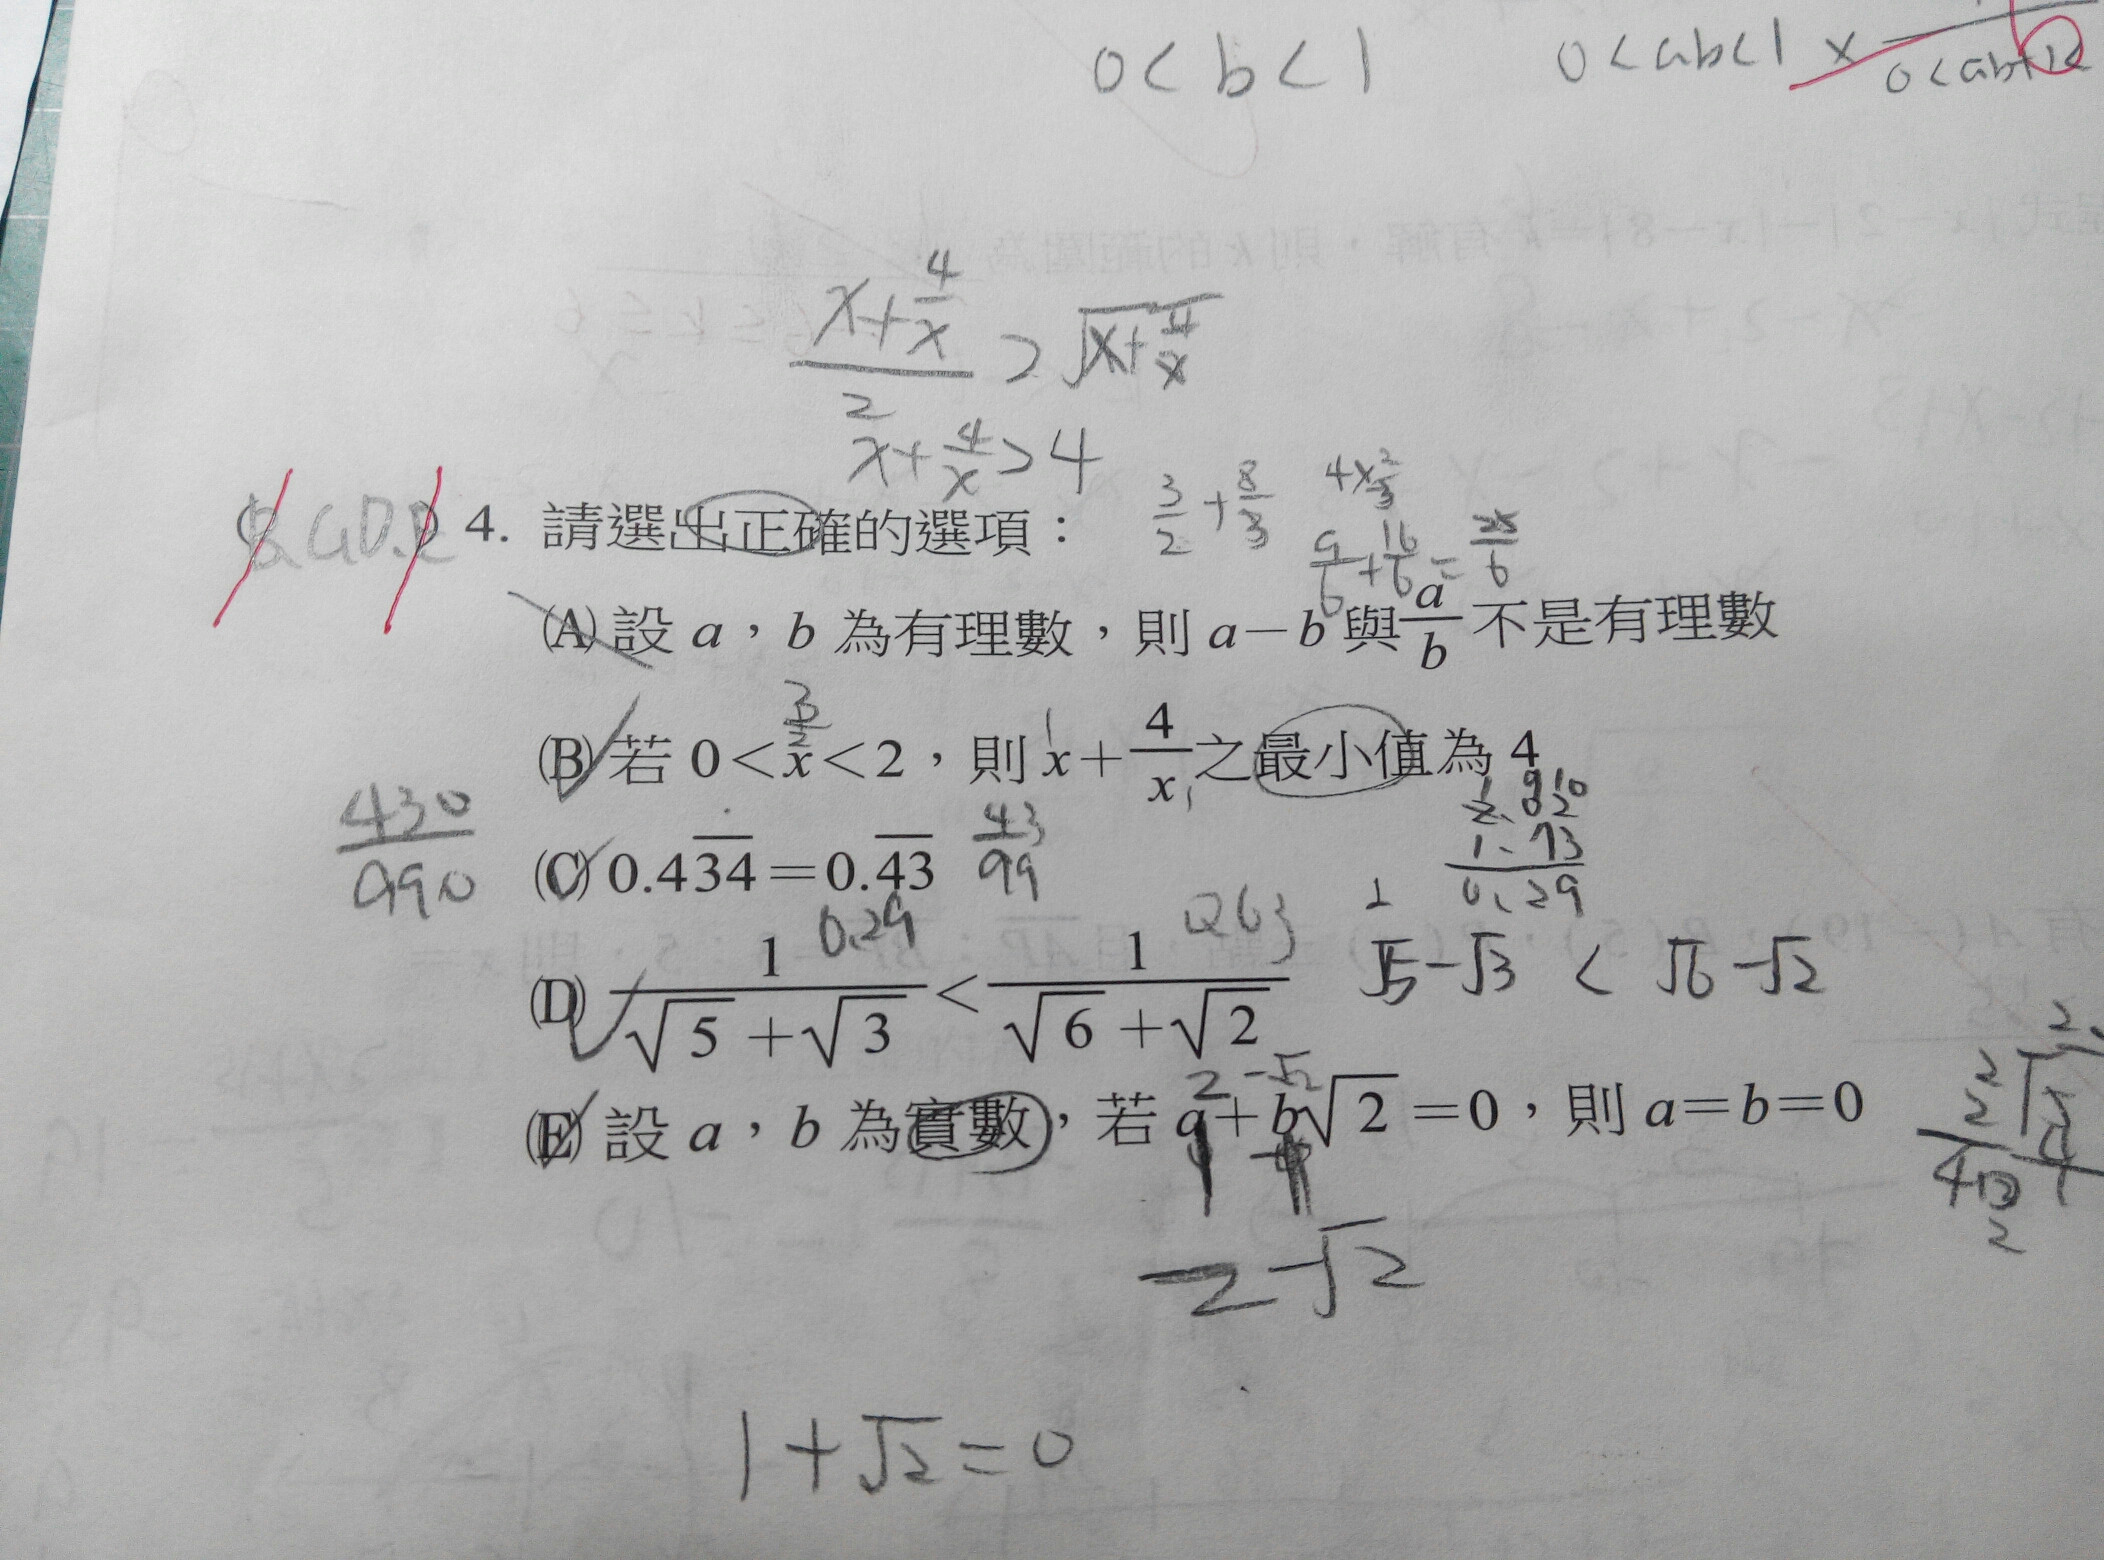 0 < b < 1
0 < ab < 1 ×
(x + 4/x)/2 > √(x + 4/x)
x + 4/x > 4
3/2 + 8/3
4 × 2/3
9/6 + 16/6 = 25/6
4. 請選出正確的選項：
(A) 設 a，b 為有理數，則 a－b 與 a/b 不是有理數
3/2
(B) 若 0＜x＜2，則 x＋4/x 之最小值為 4
430/990
(C) 0.4\overline{34}＝0.\overline{43}
43/99
1.73
0.29
0.29
(D) 1/(√5＋√3)＜1/(√6＋√2)
√5－√3 < √6－√2
2 －√2
(E) 設 a，b 為實數，若 a＋b√2＝0，則 a＝b＝0
－2－√2
1 + √2 = 0